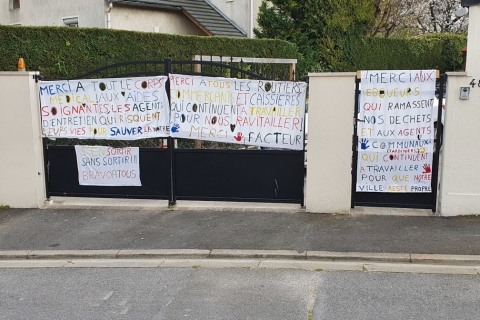 MERCI A TOUT LE CORPS
MEDICAL AUX AIDES
SOIGNANTES LES AGENTS
D'ENTRETIEN QUI RISQUENT
LEURS VIES POUR SAUVER LA NOTRE
MERCI A TOUS LES ROUTIERS
COMMERCANTS ET CAISSIERES
QUI CONTINUENT A TRAVAILLER
POUR NOUS RAVITAILLER
MERCI FACTEUR
SORTIR
SANS SORTIR !!!
BRAVO A TOUS
MERCI AUX
EBOUEURS
QUI RAMASSENT
NOS DECHETS
ET AUX AGENTS
COMMUNAUX
QUI CONTINUENT
A TRAVAILLER
POUR QUE NOTRE
VILLE RESTE PROPRE
48